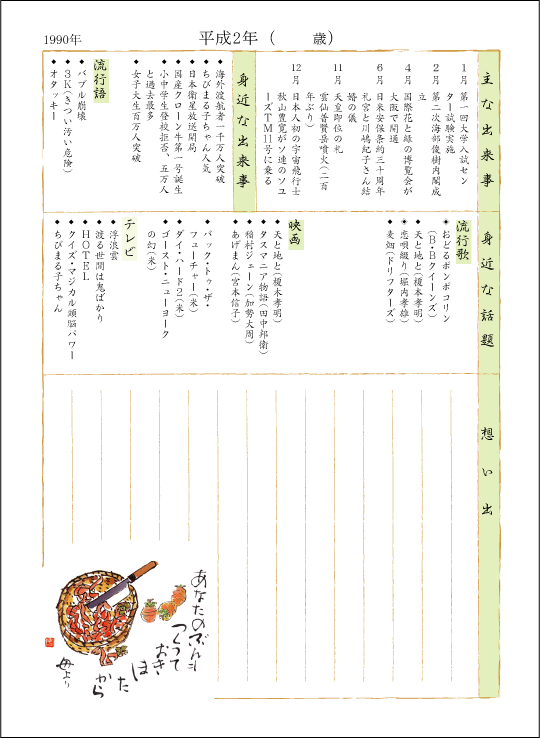 1990年
平成2年（　　　歳）
主な出来事
1月
第一回大学入試セン
ター試験実施
2月
第二次海部俊樹内閣成
立
4月
国際花と緑の博覧会が
大阪で開通
6月
日米安保条約三十周年
礼宮と川嶋紀子さん結
婚の儀
11月
天皇即位の礼
雲仙普賢岳噴火（二百
年ぶり）
12月
日本人初の宇宙飛行士
秋山豊寛がソ連のソユ
ーズTM11号に乗る
身近な出来事
◆海外渡航者一千万人突破
◆ちびまる子ちゃん人気
◆日本衛星放送開局
◆国産クローン牛第一号誕生
◆小中学生登校拒否、五万人
と過去最多
◆女子大生百万人突破
流行語
◆バブル崩壊
◆3K（きつい汚い危険）
◆オタッキー
身近な話題
流行歌
◆おどるポンポコリン
（B・Bクイーンズ）
◆天と地と（榎木孝明）
◆恋唄綴り（堀内孝雄）
◆麦畑（ドリフターズ）
映画
◆天と地と（榎木孝明）
◆タスマニア物語（田中邦衛）
◆稲村ジェーン（加勢大周）
◆あげまん（宮本信子）
◆バック・トゥ・ザ・
フューチャー（米）
◆ダイ・ハード2（米）
◆ゴースト・ニューヨーク
の幻（米）
テレビ
◆浮浪雲
◆渡る世間は鬼ばかり
◆HOTEL
◆クイズ・マジカル頭脳パワー
◆ちびまる子ちゃん
想い出
あなたのぶんも
つくって
おき
ほ
した
から
母より